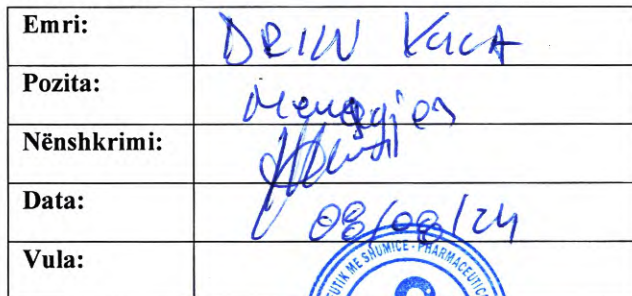 Emri: DRIN
Pozita: Menagjer
Nënshkrimi:
Data: 08/08/24
Vula:
ME SHUMICE - PHARMACEUTIC